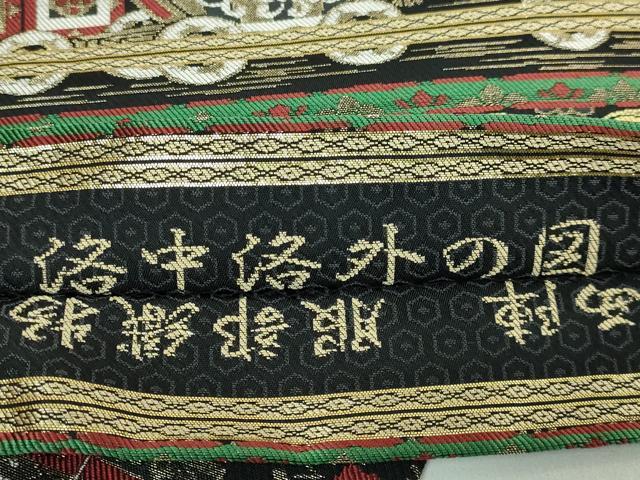 洛中洛外の図
西陣 服部織物